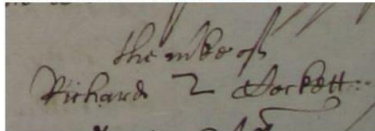 the mke of
Richard 2 Lockett